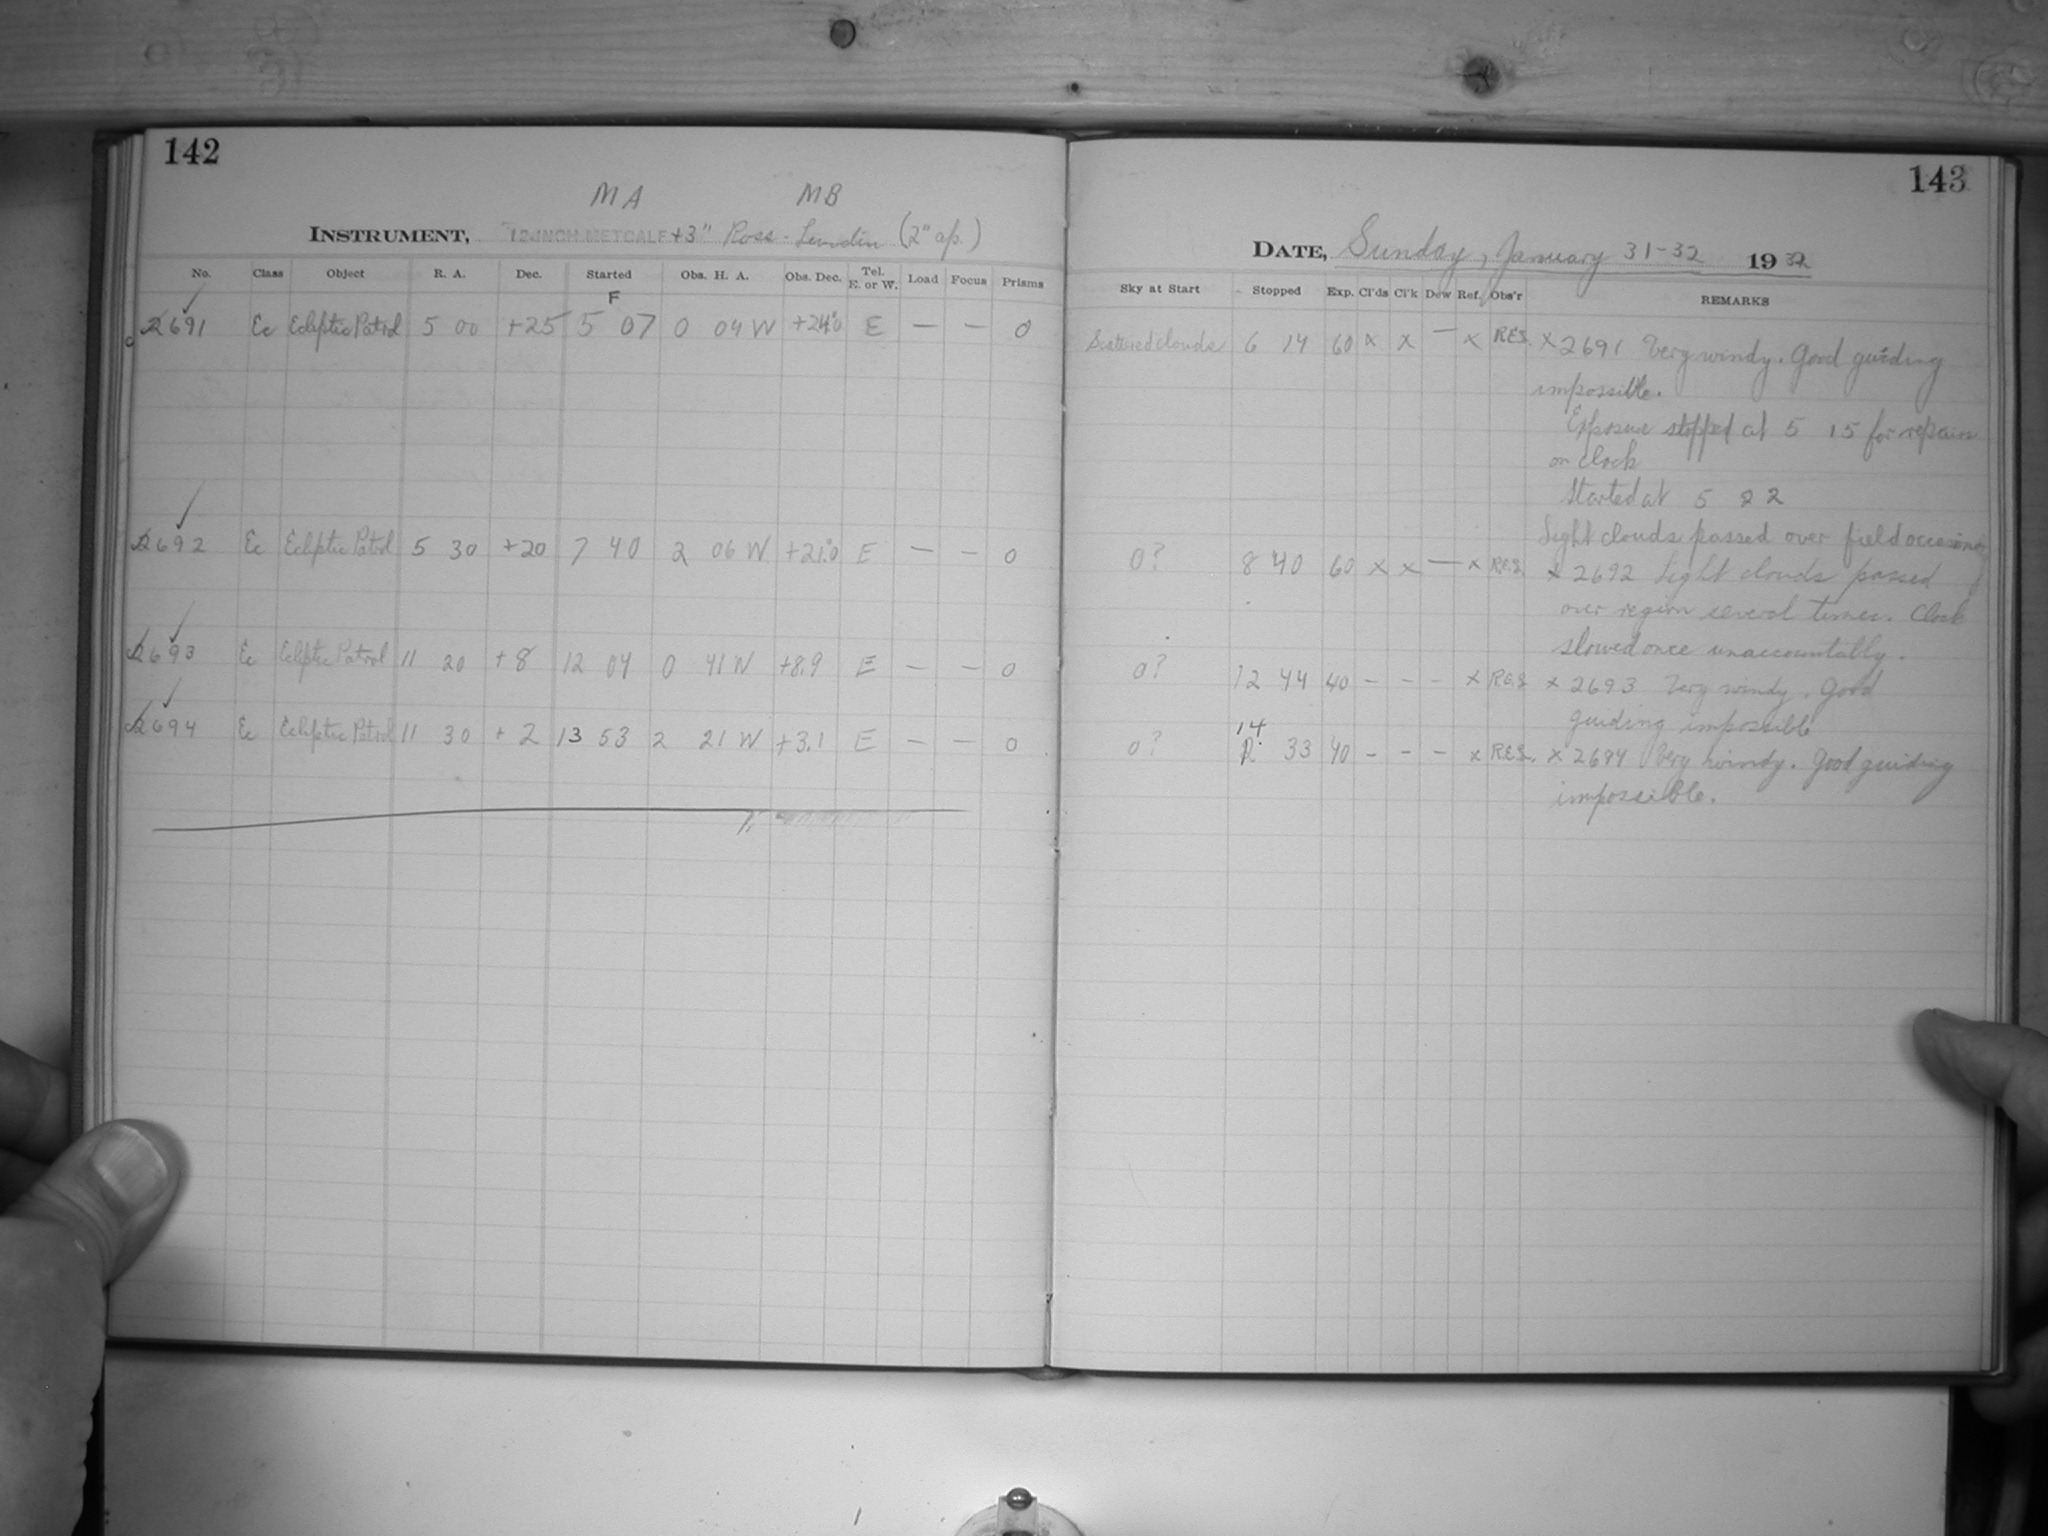 142
MA MB
INSTRUMENT, 12-INCH METCALF +3" Ross-Lundin (2" ap.)
No. Class Object R. A. Dec. Started Obs. H. A. Obs. Dec. Tel. E. or W. Load Focus Prisms
F
2691 Ec Ecliptic Patrol 5 00 +25 5 07 0 04 W +24.0 E — — 0
2692 Ec Ecliptic Patrol 5 30 +20 7 40 2 06 W +21.0 E — — 0
2693 Ec Ecliptic Patrol 11 20 +8 12 04 0 41 W +8.9 E — — 0
2694 Ec Ecliptic Patrol 11 30 +2 13 53 2 21 W +3.1 E — — 0
143
DATE, Sunday, January 31-32 1932
Sky at Start Stopped Exp. Cl'ds Cl'k Dew Ref. Obs'r REMARKS
Scattered clouds 6 14 60 x x — x R.E.S. x 2691 Very windy. Good guiding
impossible.
Exposure stopped at 5 15 for repairs
on clock
Started at 5 22
Light clouds passed over field
0? 8 40 60 x x — x R.E.S. x 2692 Light clouds passed
over region several times. Clock
slowed once unaccountably.
0? 12 44 40 - - - x R.E.S. x 2693 Very windy. Good
guiding impossible
0? 14 33 40 - - - x R.E.S. x 2694 Very windy. Good guiding
impossible.